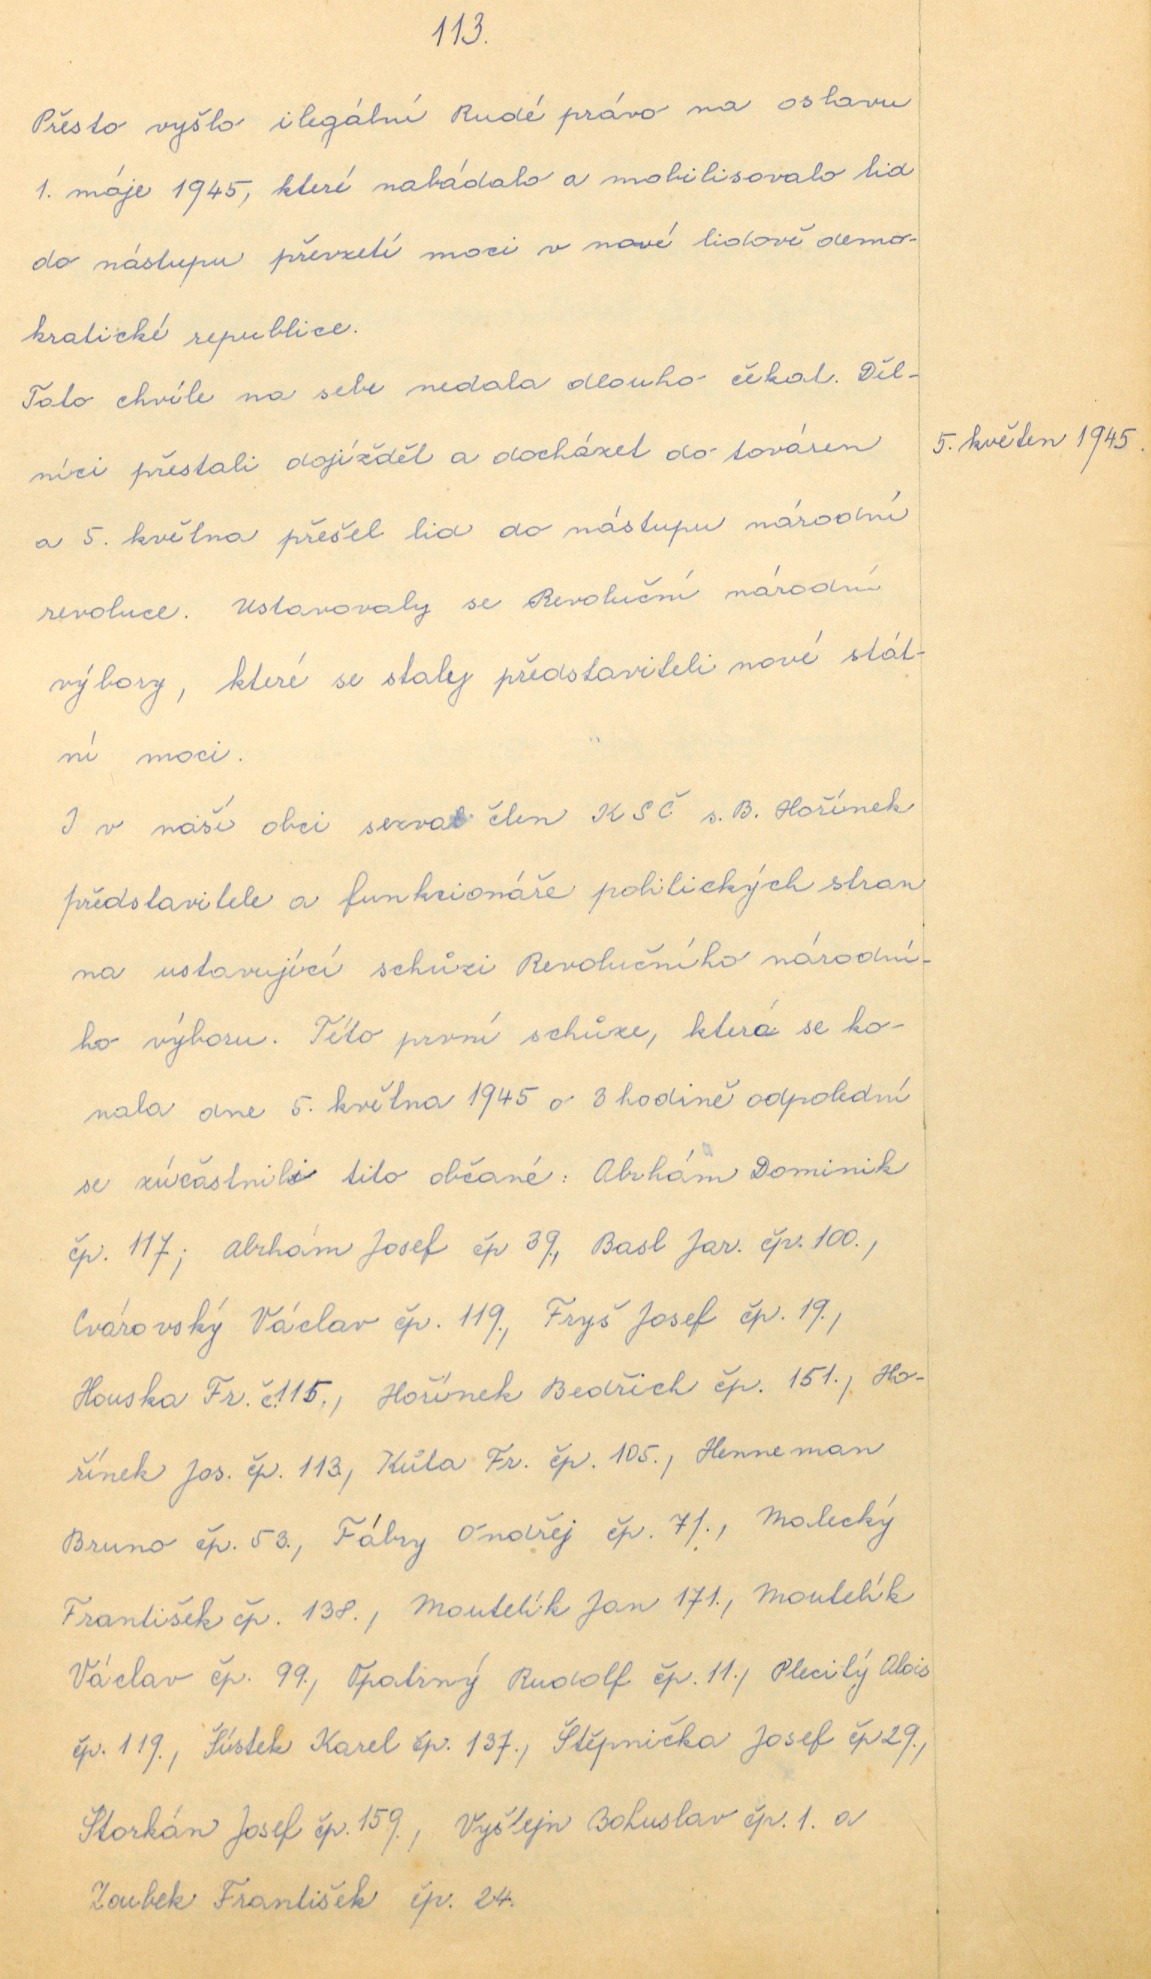 113.
Přesto vyšlo ilegální Rudé právo na oslavu
1. máje 1945, které nabádalo a mobilisovalo lid
do nástupu převzetí moci v nové lidově demo-
kratické republice.
Tato chvíle na sebe nedala dlouho čekat. Děl-
níci přestali dojíždět a docházet do továren
5. květen 1945.
a 5. května přešel lid do nástupu národní
revoluce. Ustavovaly se Revoluční národní
výbory, které se staly představiteli nové stát-
ní moci.
I v naší obci sezval člen KSČ s. B. Hořínek
představitele a funkcionáře politických stran
na ustavující schůzi Revolučního národní-
ho výboru. Této první schůze, která se ko-
nala dne 5. května 1945 o 3 hodině odpolední
se zúčastnili tito občané: Abrhám Dominik
čp. 117; Abrhám Josef čp 39., Basl Jar. čp. 100.,
Cvárovský Václav čp. 119., Fryš Josef čp. 19.,
Houska Fr. č.115., Hořínek Bedřich čp. 151., Ho-
řínek Jos. čp. 113., Kůta Fr. čp. 105., Henneman
Bruno čp. 53., Fábry Ondřej čp. 71., Malecký
František čp. 138., Moutelík Jan 171., Moutelík
Václav čp. 99., Opatrný Rudolf čp. 11., Plecitý Alois
čp. 119., Šístek Karel čp. 137., Štěpnička Josef čp 29.,
Štorkán Josef čp. 159., Vyšlejn Bohuslav čp. 1. a
Zoubek František čp. 24.